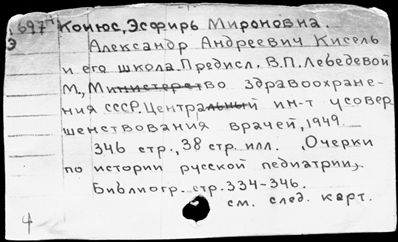 697 Конюс, Эсфирь Мироновна.
Э
Александр Андреевич Кисель
и его школа. Предисл. В.П. Лебедевой
М., Министерство здравоохране-
ния СССР. Центральный ин-т усовер
шенствования врачей, 1949.
346 стр., 38 стр. илл. (Очерки
по истории русской педиатрии).
Библиогр. стр. 334-346.
см. след. карт.
4